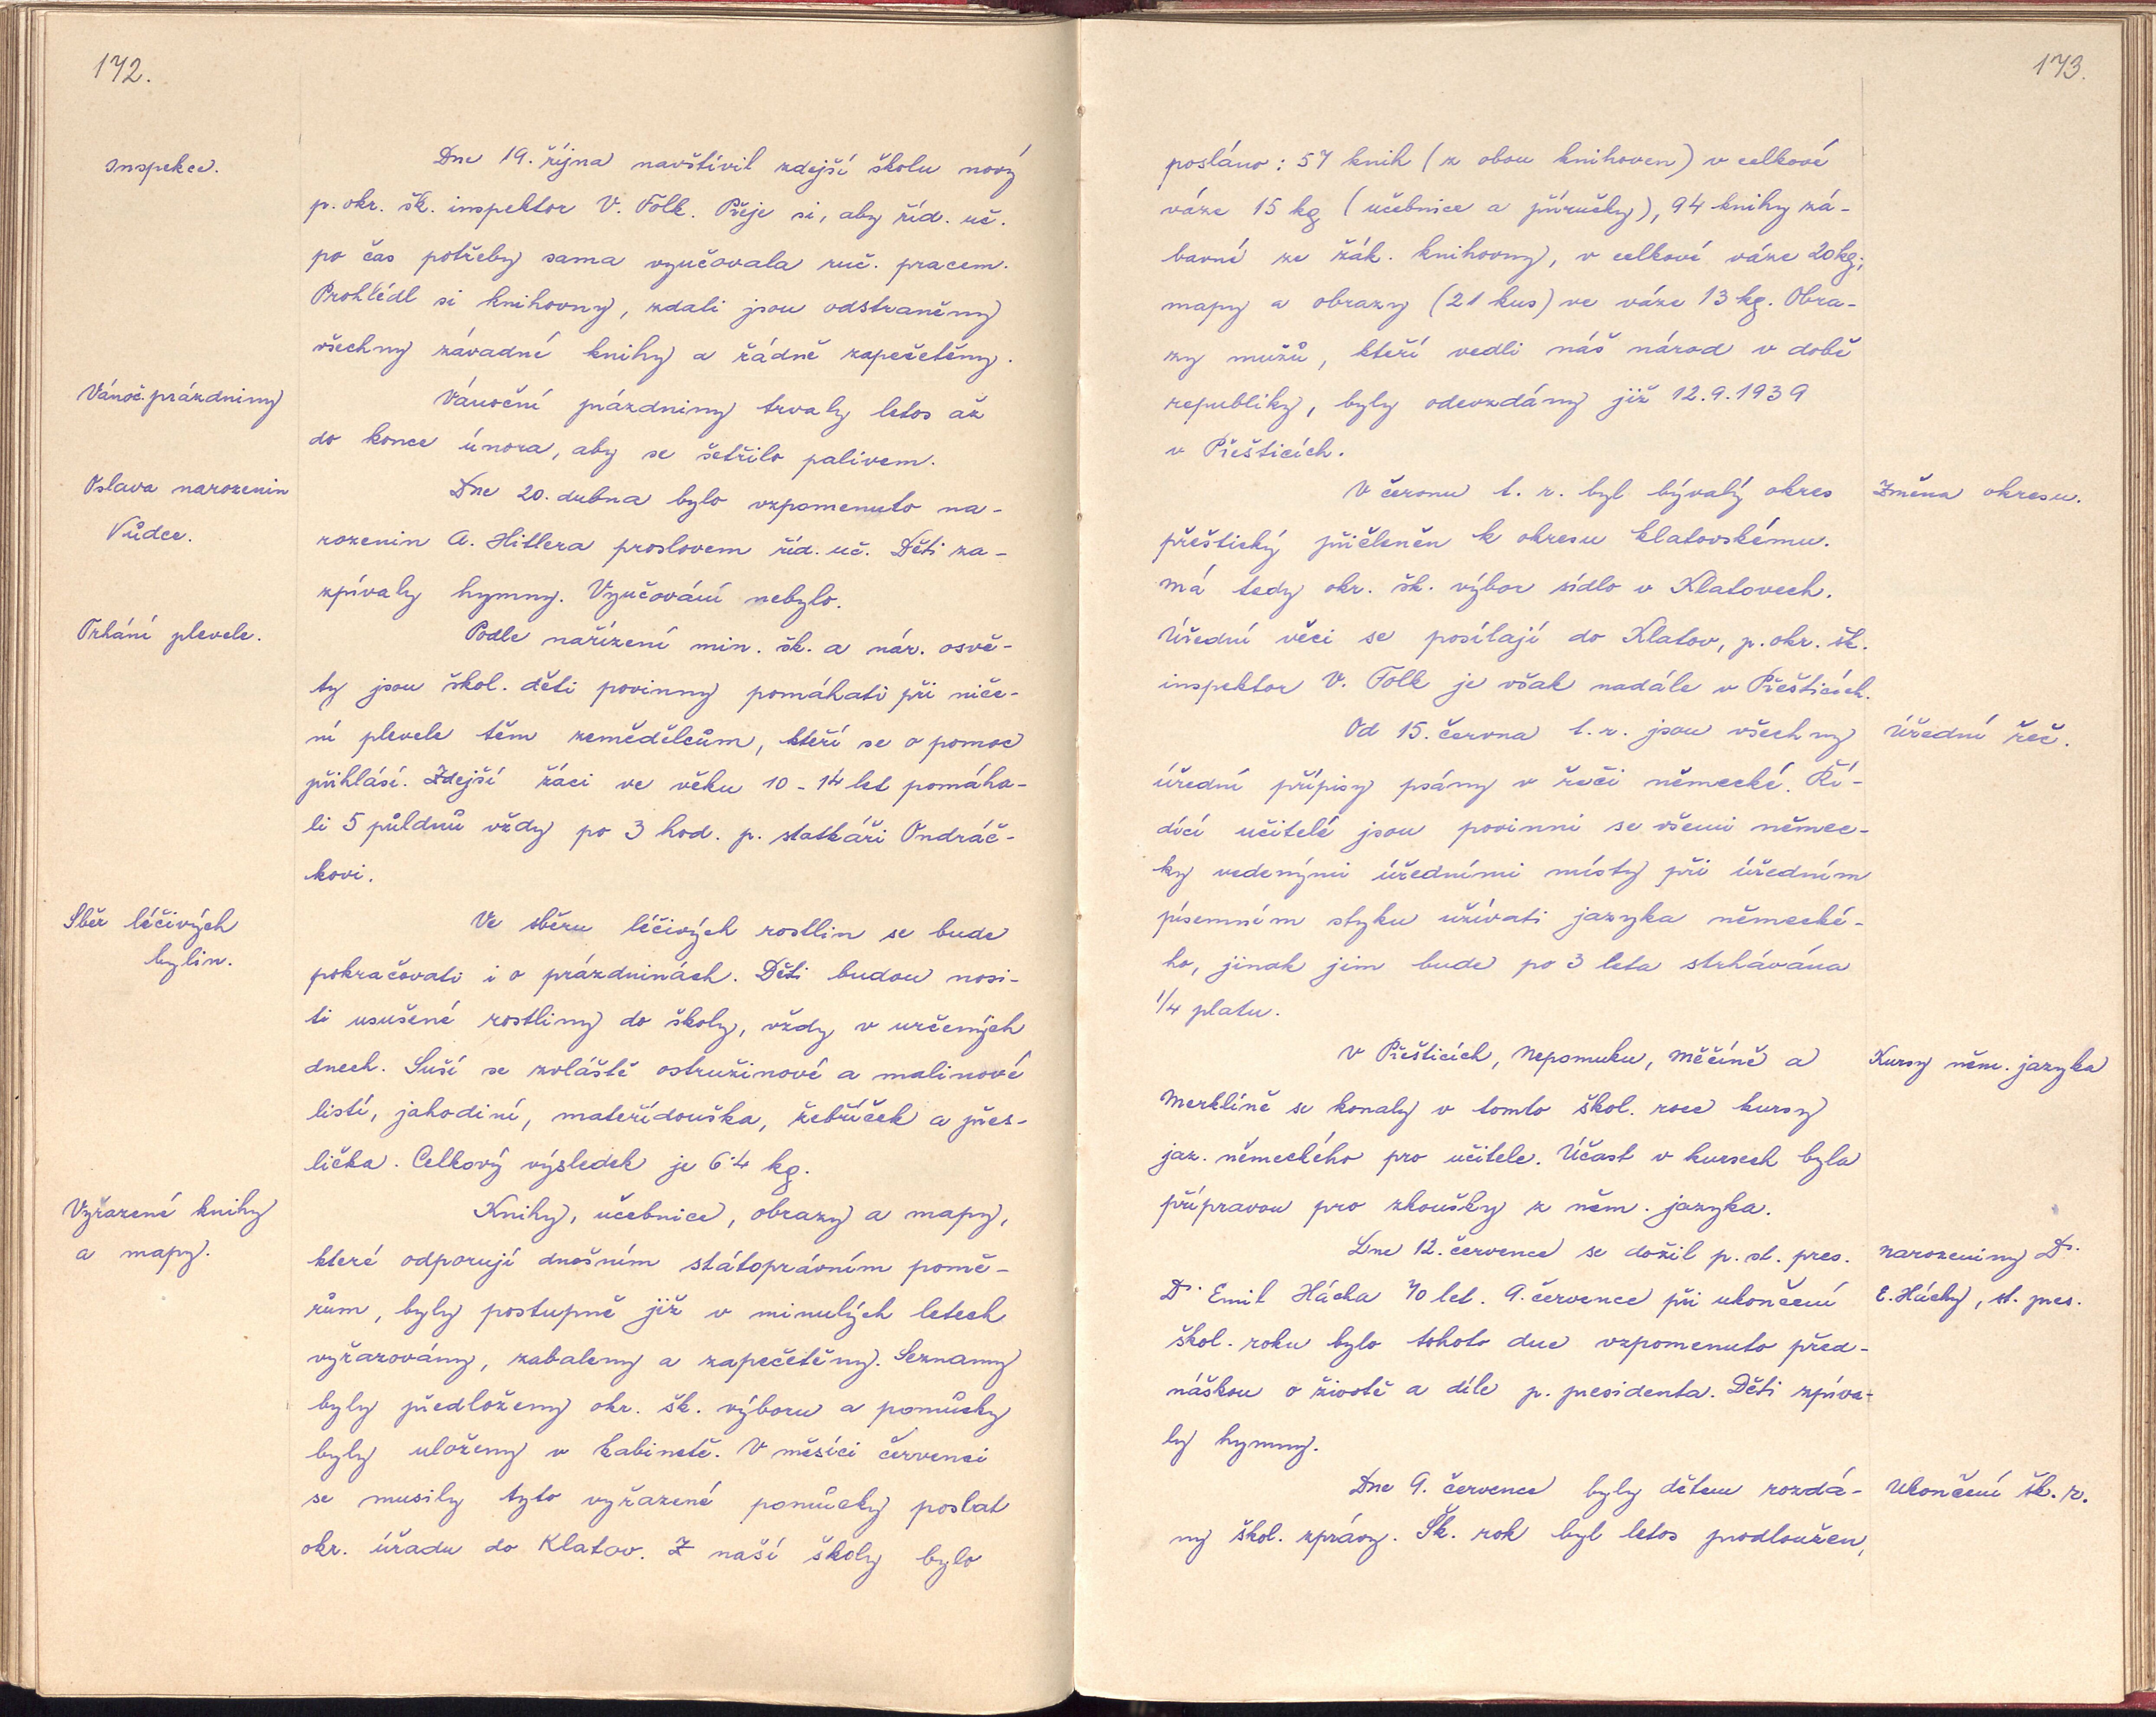 172.
Inspekce.
Dne 19. října navštívil zdejší školu nový
p. okr. šk. inspektor V. Tolk. Přeje si, aby říd. uč.
po čas potřeby sama vyučovala ruč. pracem.
Prohlédl si knihovny, zdali jsou odstraněny
všechny závadné knihy a řádně zapečetěny.
Vánoč. prázdniny
Vánoční prázdniny trvaly letos až
do konce února, aby se šetřilo palivem.
Oslava narozenin
Vůdce.
Dne 20. dubna bylo vzpomenuto na-
rozenin A. Hitlera proslovem říd. uč. Děti za-
zpívaly hymny. Vyučování nebylo.
Trhání plevele.
Podle nařízení min. šk. a nár. osvě-
ty jsou škol. děti povinny pomáhati při niče-
ní plevele těm zemědělcům, kteří se o pomoc
přihlásí. Zdejší žáci ve věku 10 - 14 let pomáha-
li 5 půldnů vždy po 3 hod. p. statkáři Ondráč-
kovi.
Sběr léčivých
bylin.
Ve sběru léčivých rostlin se bude
pokračovati i o prázdninách. Děti budou nosi-
ti usušené rostliny do školy, vždy v určených
dnech. Suší se zvláště ostružinové a malinové
listí, jahodiní, mateřídouška, žebříček a přes-
lička. Celkový výsledek je 6·4 kg.
Vyřazené knihy
a mapy.
Knihy, učebnice, obrazy a mapy,
které odporují dnešním státoprávním pomě-
rům, byly postupně již v minulých letech
vyřazovány, zabaleny a zapečetěny. Seznamy
byly předloženy okr. šk. výboru a pomůcky
byly uloženy v kabinetě. V měsíci červenci
se musily tyto vyřazené pomůcky poslat
okr. úřadu do Klatov. Z naší školy bylo
173.
posláno: 57 knih (z obou knihoven) v celkové
váze 15 kg (učebnice a příručky), 94 knihy zá-
bavné ze žák. knihovny, v celkové váze 20 kg;
mapy a obrazy (21 kus) ve váze 13 kg. Obra-
zy mužů, kteří vedli náš národ v době
republiky, byly odevzdány již 12.9.1939
v Přešticích.
V červnu t. r. byl bývalý okres
Změna okresu.
přeštický přičleněn k okresu klatovskému.
Má tedy okr. šk. výbor sídlo v Klatovech.
Úřední věci se posílají do Klatov, p. okr. šk.
inspektor V. Tolk je však nadále v Přešticích.
Od 15. června t. r. jsou všechny
Úřední řeč.
úřední přípisy psány v řeči německé. Ří-
dící učitelé jsou povinni se všemi němec-
ky vedenými úředními místy při úředním
písemním styku užívati jazyka německé-
ho, jinak jim bude po 3 leta strhávána
1/4 platu.
V Přešticích, Nepomuku, Měčíně a
Kursy něm. jazyka
Merklíně se konaly v tomto škol. roce kursy
jaz. německého pro učitele. Účast v kursech byla
přípravou pro zkoušky z něm. jazyka.
Dne 12. července se dožil p. st. pres.
Narozeniny Dr.
Dr. Emil Hácha 70 let. 9. července při ukončení
E. Háchy, st. pres.
škol. roku bylo tohoto dne vzpomenuto před-
náškou o životě a díle p. presidenta. Děti zpíva-
ly hymny.
Dne 9. července byly dětem rozdá-
Ukončení šk. r.
ny škol. zprávy. Šk. rok byl letos prodloužen,